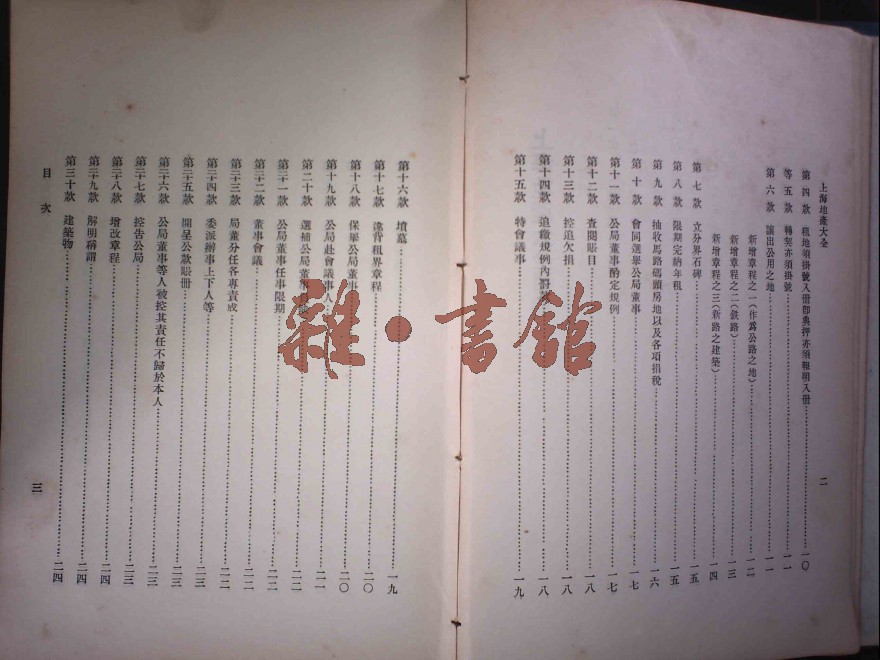 上海地產大全
第四款 租地須掛號入冊即典押亦須報明入冊……一〇
等五款 轉契亦須掛號……一一
第六款 讓出公用之地……一一
新增章程之一(作爲公路之地)……一二
新增章程之二(鐵路)……一三
新增章程之三(新路之建築)……一四
第七款 立分界石碑……一五
第八款 限期完納年租……一五
第九款 抽收馬路碼頭房地以及各項捐稅……一六
第十款 會同選舉公局董事……一七
第十一款 公局董事酌定規例……一七
第十二款 查閱賬目……一八
第十三款 控追欠損……一八
第十四款 追繳規例內罰……一八
第十五款 特會議事……一九
二
第十六款 墳墓……一九
第十七款 違背租界章程……二〇
第十八款 保舉公局董事……二〇
第十九款 公局赴會議事人……二一
第二十款 選補公局董事……二二
第二十一款 公局董事任事限期……二二
第二十二款 董事會議……二二
第二十三款 局董分任各專責成……二二
第二十四款 委派辦事上下人等……二三
第二十五款 開呈公款賬冊……二三
第二十六款 公局董事等人被控其責任不歸於本人……二三
第二十七款 控告公局……二三
第二十八款 增改章程……二四
第二十九款 解明稱謂……二四
第三十款 建築物……二四
目次
三
雜·書館